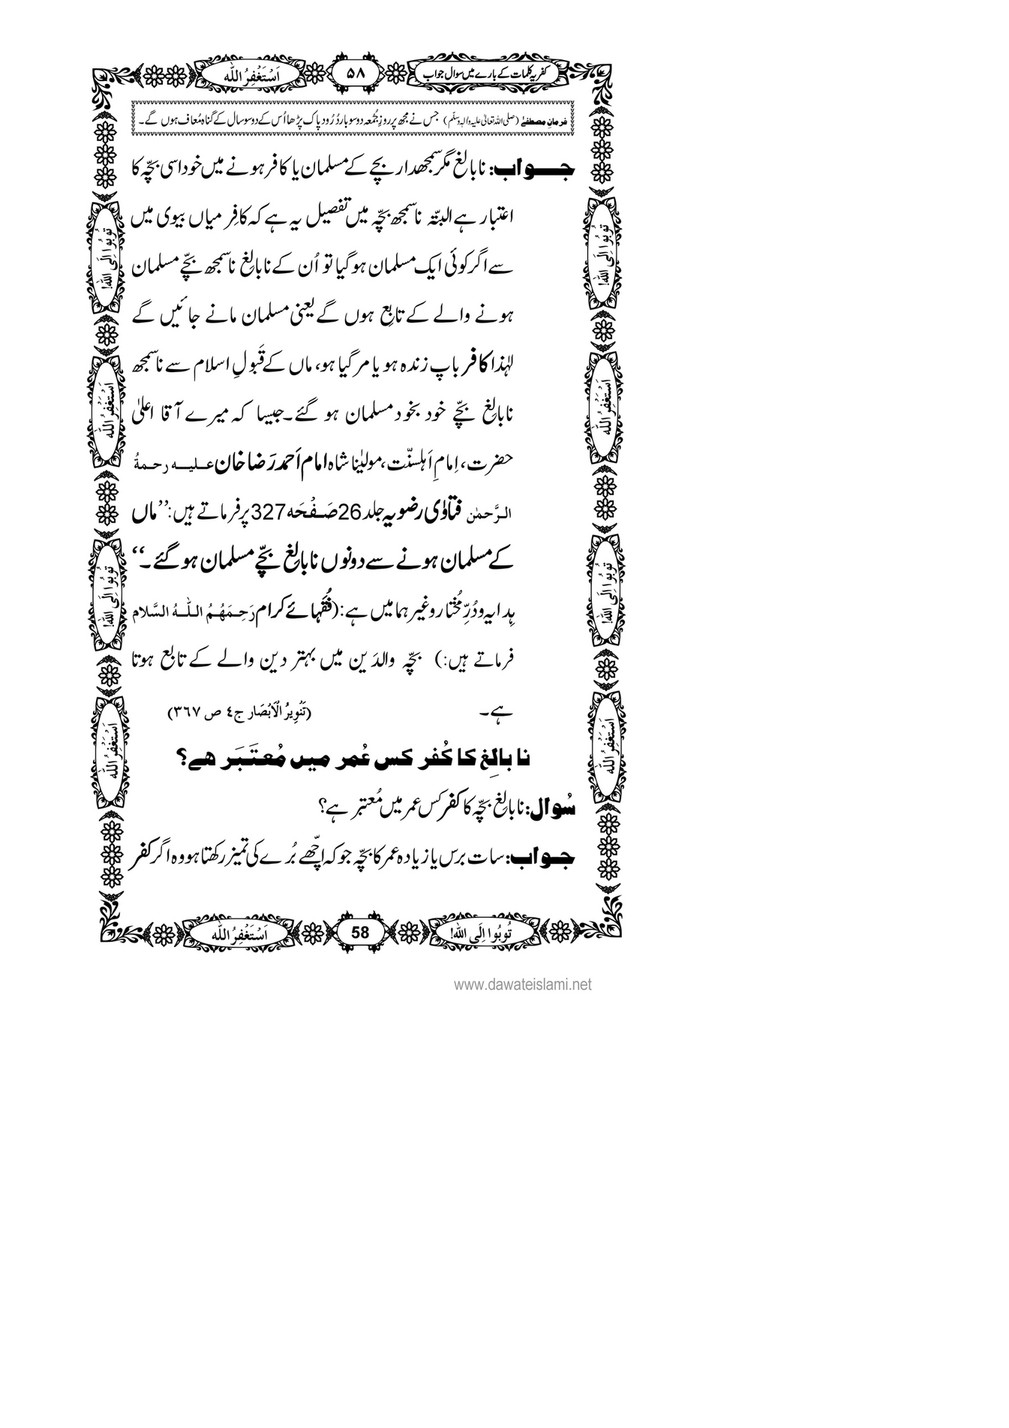 کفریہ کلمات کے بارے میں سوال جواب
۵۸
اَسْتَغْفِرُ اللّٰہ
فرمانِ مصطفٰے (صلی اللہ تعالیٰ علیہ والہ وسلم) جس نے مجھ پر روزِ جُمُعہ دو سو بار دُرُود پاک پڑھا اُس کے دو سو سال کے گناہ مُعاف ہوں گے۔
جواب: نابالِغ مگر سمجھدار بچے کے مسلمان یا کافر ہونے میں خود اسی بچّہ کا
اعتبار ہے البتّہ ناسمجھ بچّہ میں تفصیل یہ ہے کہ کافِر میاں بیوی میں
سے اگر کوئی ایک مسلمان ہو گیا تو اُن کے نابالِغ ناسمجھ بچّے مسلمان
ہونے والے کے تابِع ہوں گے یعنی مسلمان مانے جائیں گے
لہٰذا کافِر باپ زندہ ہو یا مر گیا ہو، ماں کے قَبولِ اسلام سے ناسمجھ
نابالِغ بچّے خود بخود مسلمان ہو گئے۔ جیسا کہ میرے آقا اعلیٰ
حضرت، اِمامِ اَہلسنّت، مولیٰنا شاہ امام اَحمد رَضا خان علیہ رحمۃُ
الرَّحمٰن فتاوٰی رضویہ جلد 26 صَفْحَہ 327 پر فرماتے ہیں: ’’ماں
کے مسلمان ہونے سے دونوں نابالِغ بچّے مسلمان ہو گئے۔‘‘
ہِدایہ و دُرِّ مُختار وغیرہما میں ہے: (فُقَہائے کرام رَحِمَهُمُ اللّٰهُ السَّلام
فرماتے ہیں:) بچّہ والدَین میں بہتر دین والے کے تابع ہوتا
ہے۔ (تَنْوِیرُ الْاَبْصَار ج٤ ص ٣٦٧)
نابالِغ کا کُفر کس عُمر میں مُعتَبَر ہے؟
سُوال: نابالِغ بچّہ کا کفر کس عمر میں مُعتبر ہے؟
جواب: سات برس یا زیادہ عمر کا بچّہ جو کہ اچّھے بُرے کی تمیز رکھتا ہو وہ اگر کفر
تُوبُوا اِلَی اللہ!
اَسْتَغْفِرُ اللّٰہ
تُوبُوا اِلَی اللہ!
اَسْتَغْفِرُ اللّٰہ
تُوبُوا اِلَی اللہ!
اَسْتَغْفِرُ اللّٰہ
تُوبُوا اِلَی اللہ!
اَسْتَغْفِرُ اللّٰہ
تُوبُوا اِلَی اللہ!
58
اَسْتَغْفِرُ اللّٰہ
www.dawateislami.net